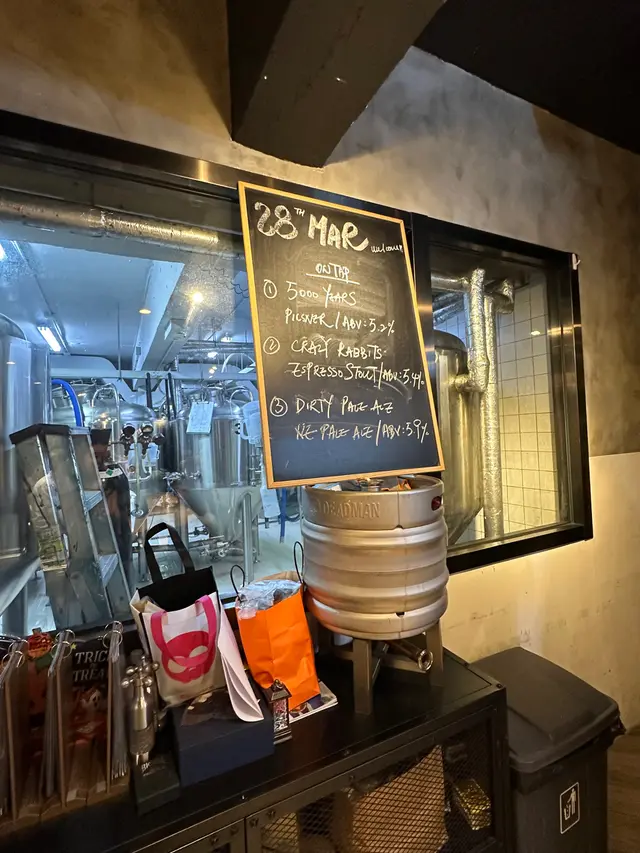 28TH MAR welcome
ON TAP
① 5000 YEARS
PILSNER / ABV: 5.2%
② CRAZY RABBITS
ESPRESSO STOUT / ABV: 5.4%
③ DIRTY PALE ALE
NE PALE ALE / ABV: 5.9%
DEADMAN
TRICK
TREAT